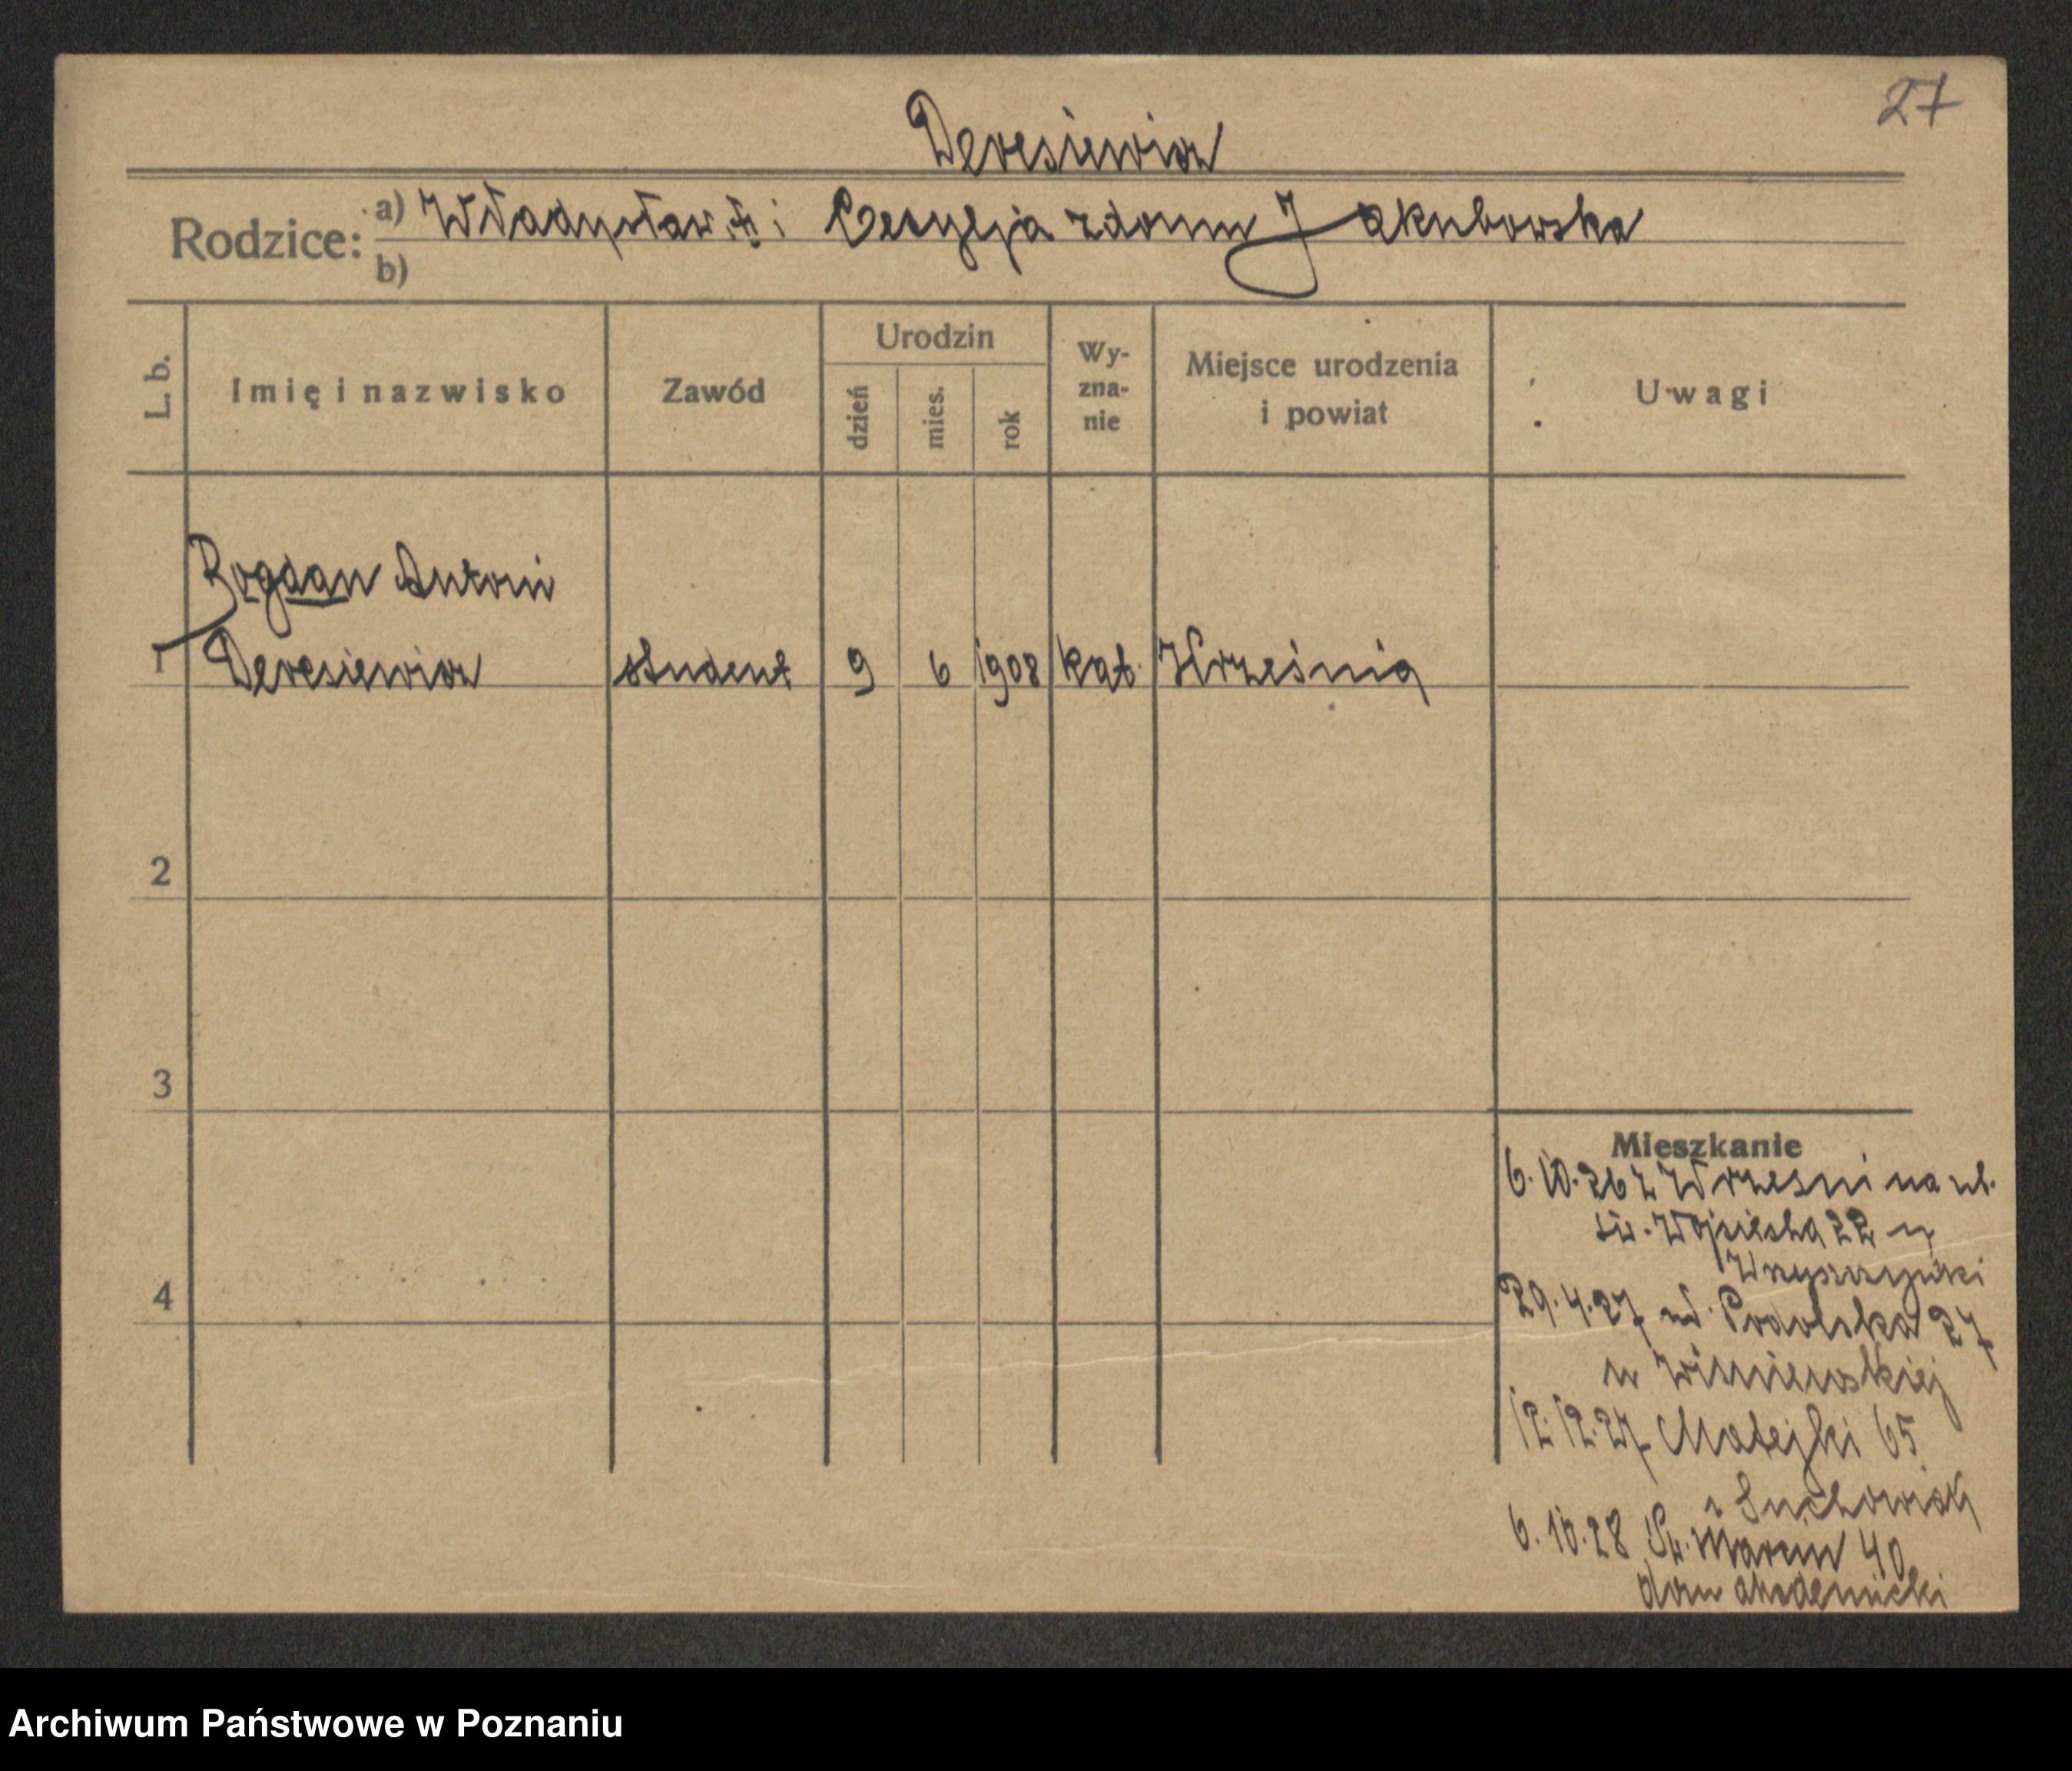 27
Deresiewicz
Rodzice: a) Władysław i Cecylja z domu Jakubowska
b)
L. b.
Imię i nazwisko
Zawód
Urodzin
dzień
mies.
rok
Wy-
zna-
nie
Miejsce urodzenia
i powiat
Uwagi
Bogdan Antoni
1 Deresiewicz student 9 6 1908 kat. Września
2
3
4
Mieszkanie
6.10.26 z Wrześni na ul.
św. Wojciecha 22 u
29.4.27 ul. Podolska 27
u Wiśniewskiej
12.12.27 Matejki 65
u Suchowiak
6.10.28 Św. Marcin 40
dom akademicki
Archiwum Państwowe w Poznaniu